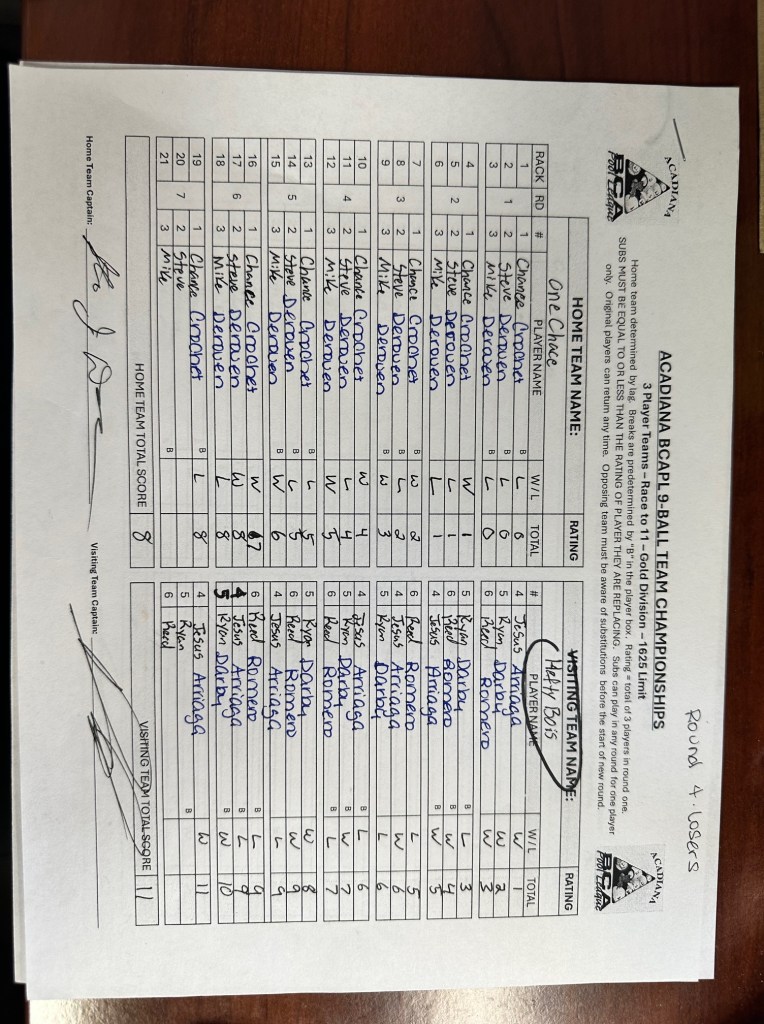 Round 4. losers
ACADIANA BCA Pool League
ACADIANA BCAPL 9-BALL TEAM CHAMPIONSHIPS
ACADIANA BCA Pool League
3 Player Teams – Race to 11 – Gold Division – 1625 Limit
Home team determined by lag. Breaks are predetermined by "B" in the player box. Rating = total of 3 players in round one.
SUBS MUST BE EQUAL TO OR LESS THAN THE RATING OF PLAYER THEY ARE REPLACING. Subs can play in any round for one player
only. Original players can return any time. Opposing team must be aware of substitutions before the start of new round.
HOME TEAM NAME: RATING VISITING TEAM NAME: RATING
One Chace Hefty Bois
RACK RD # PLAYER NAME W/L TOTAL # PLAYER NAME W/L TOTAL
1 1 Chance Crochet B L 0 4 Jesus Arriaga W 1
2 1 2 Steve Derouen B L 0 5 Ryan Darby W 2
3 3 Mike Derouen B L 0 6 Reed Romero W 3
4 1 Chance Crochet W 1 5 Ryan Darby B L 3
5 2 2 Steve Derouen L 1 6 Reed Romero B W 4
6 3 Mike Derouen L 1 4 Jesus Arriaga B W 5
7 1 Chance Crochet B W 2 6 Reed Romero L 5
8 3 2 Steve Derouen B L 2 4 Jesus Arriaga W 6
9 3 Mike Derouen B W 3 5 Ryan Darby L 6
10 1 Chance Crochet W 4 4 Jesus Arriaga B L 6
11 4 2 Steve Derouen L 4 5 Ryan Darby B W 7
12 3 Mike Derouen W 5 6 Reed Romero B L 7
13 1 Chance Crochet B L 5 5 Ryan Darby W 8
14 5 2 Steve Derouen B L 5 6 Reed Romero W 9
15 3 Mike Derouen B W 6 4 Jesus Arriaga L 9
16 1 Chance Crochet W 7 6 Reed Romero B L 9
17 6 2 Steve Derouen W 8 4 Jesus Arriaga B L 9
18 3 Mike Derouen L 8 5 Ryan Darby B W 10
19 1 Chance Crochet B L 8 4 Jesus Arriaga W 11
20 7 2 Steve 5 Ryan B
21 3 Mike B 6 Reed
HOME TEAM TOTAL SCORE 8 VISITING TEAM TOTAL SCORE 11
Home Team Captain: Visiting Team Captain: